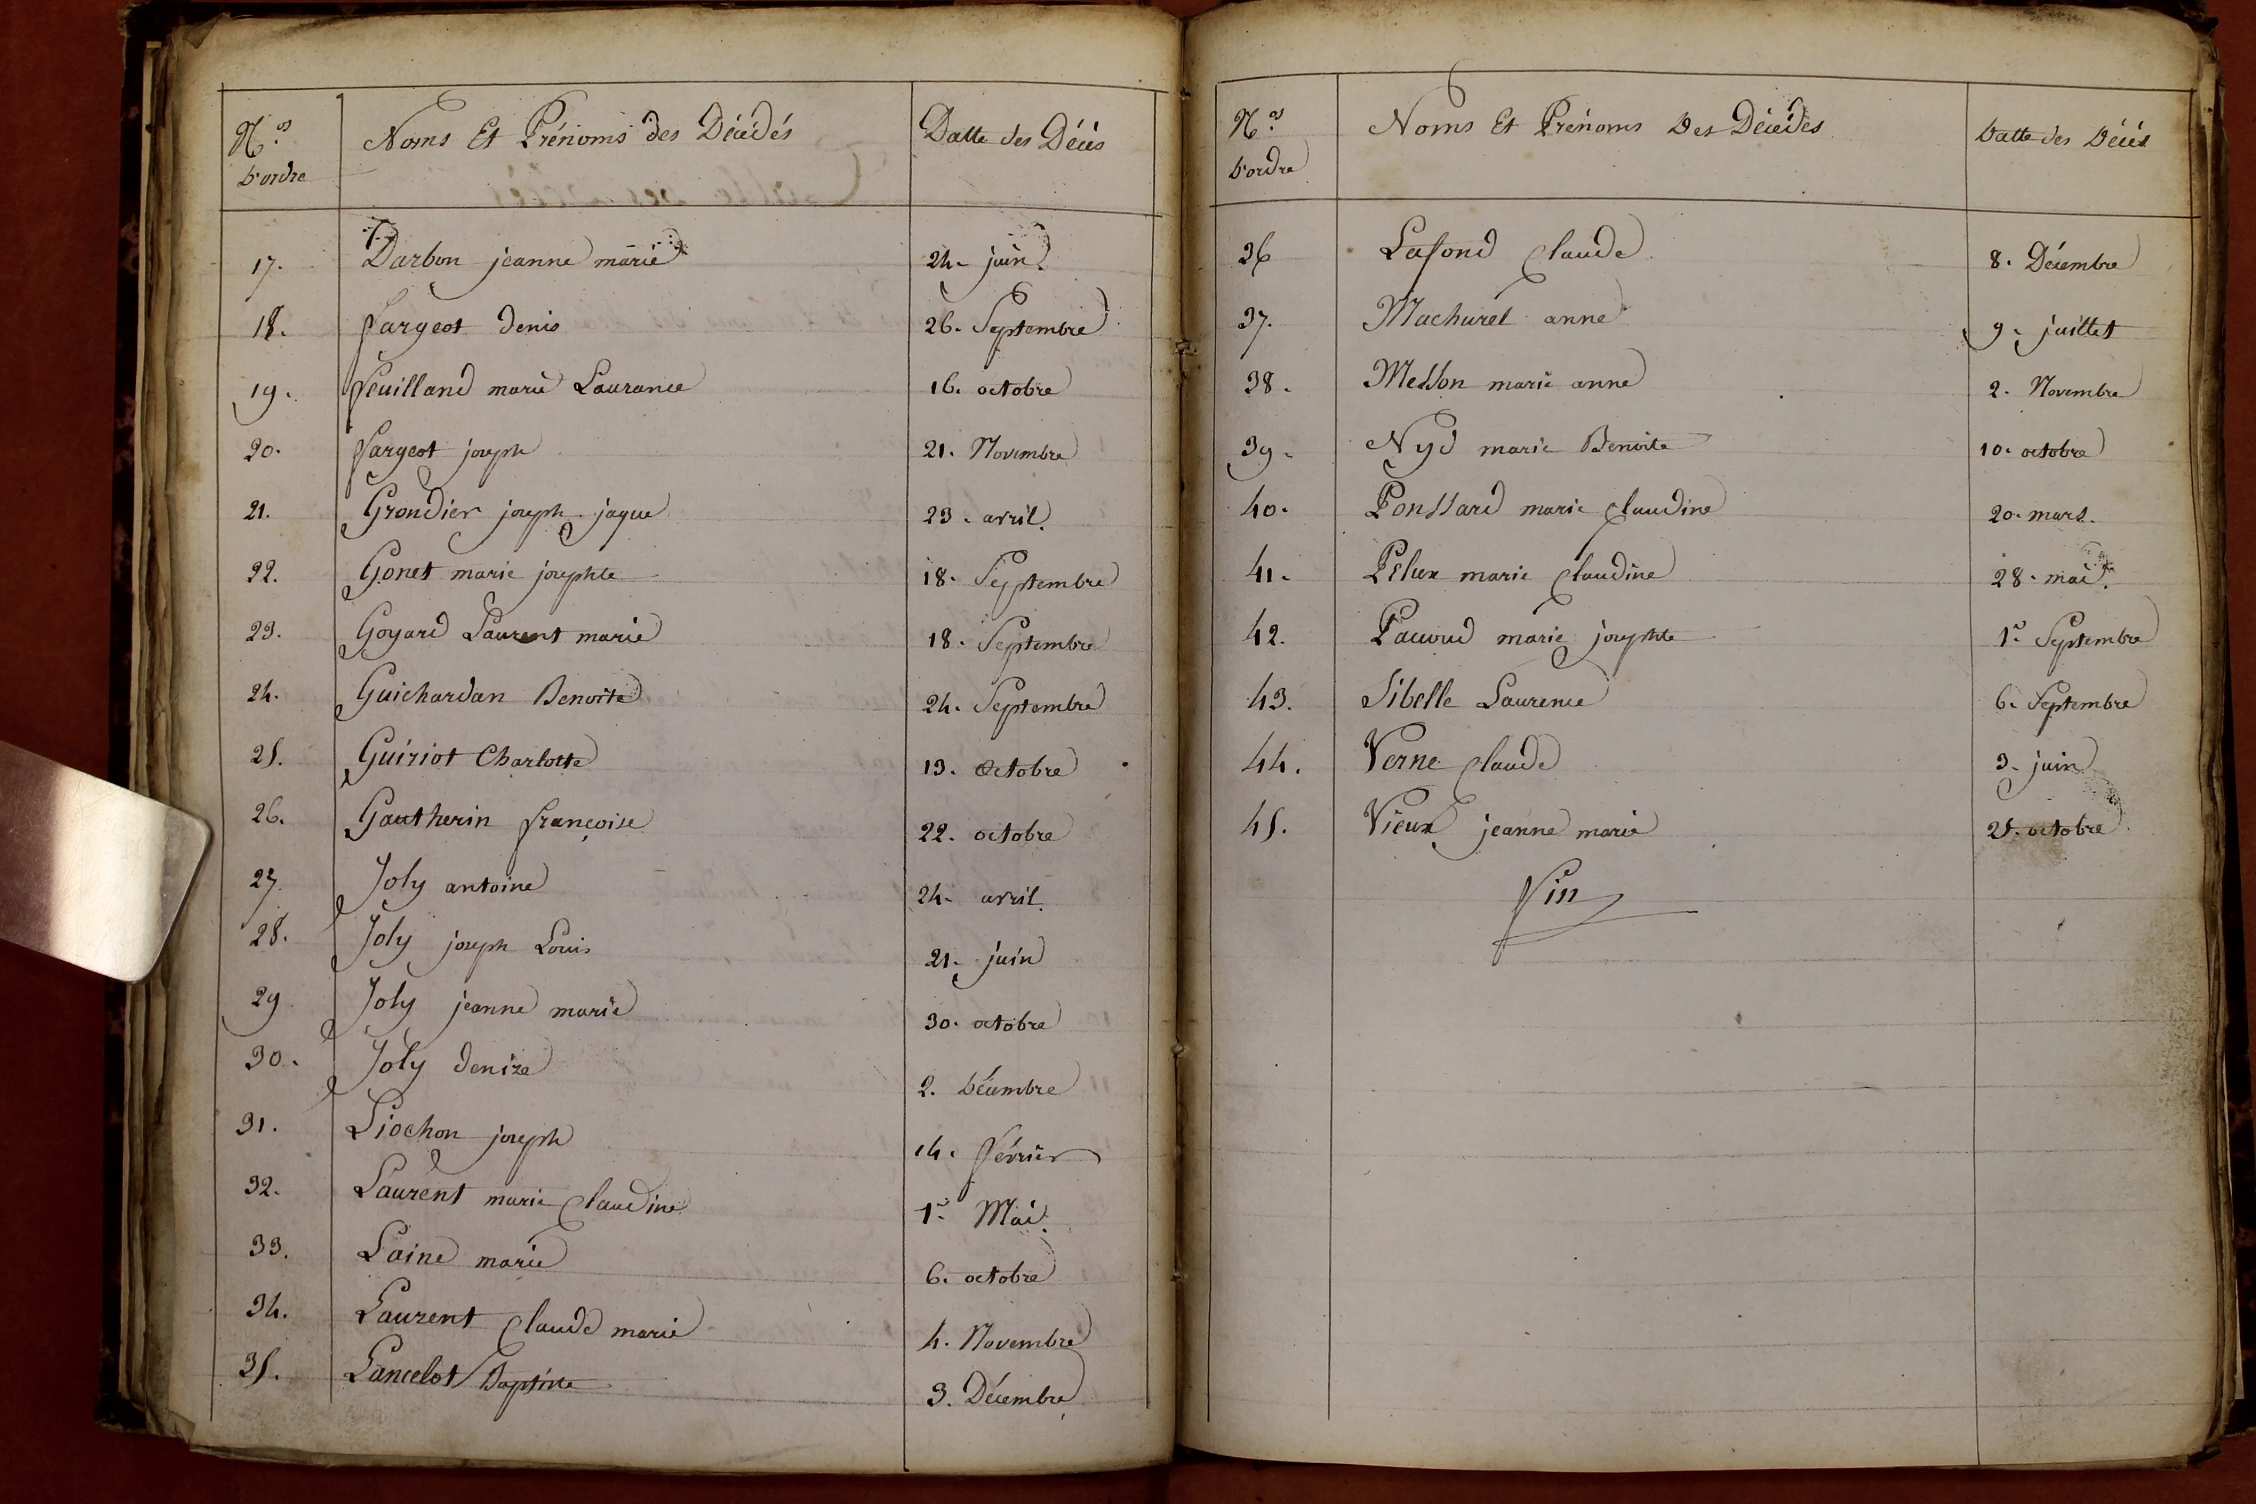 N.os Noms Et Prénoms des Décédés Datte des Décès
D'ordre
17. Darbon jeanne marie 24. juin.
18. Fargeot denis 26. Septembre
19. Feuilland marie Laurance 16. octobre
20. Fargeot joseph 21. Novembre
21. Grondier joseph jaque 23. avril.
22. Gonet marie josephte 18. Septembre
23. Goyard Laurent marie 18. Septembre
24. Guichardan Benoite 24. Septembre
25. Guiriot Charlotte 13. Octobre
26. Gautherin françoise 22. octobre
27. Joly antoine 24. avril.
28. Joly joseph Louis 21. juin
29 Joly jeanne marie 30. octobre
30. Joly denize 2. Décembre
31. Liochon joseph 14. Février
32. Laurent marie Claudine 1er Mai.
33. Laine marie 6. octobre
34. Laurent Claude marie 4. Novembre
35. Lancelot Baptiste 3. Décembre
N.os Noms Et Prénoms Des Décédés Datte des Décès
D'ordre
36 Lafond Claude 8. Décembre
37. Machurel anne 9. juillet
38. Messon marie anne 2. Novembre
39. Nyd marie Benoite 10. octobre
40. Ponssard marie Claudine 20. mars.
41. Pelux marie Claudine 28. mai.
42. Pacoud marie josephte 1er Septembre
43. Sibelle Laurence 6. Septembre
44. Verne Claude 3. juin
45. Vieux jeanne marie 25. octobre
Fin